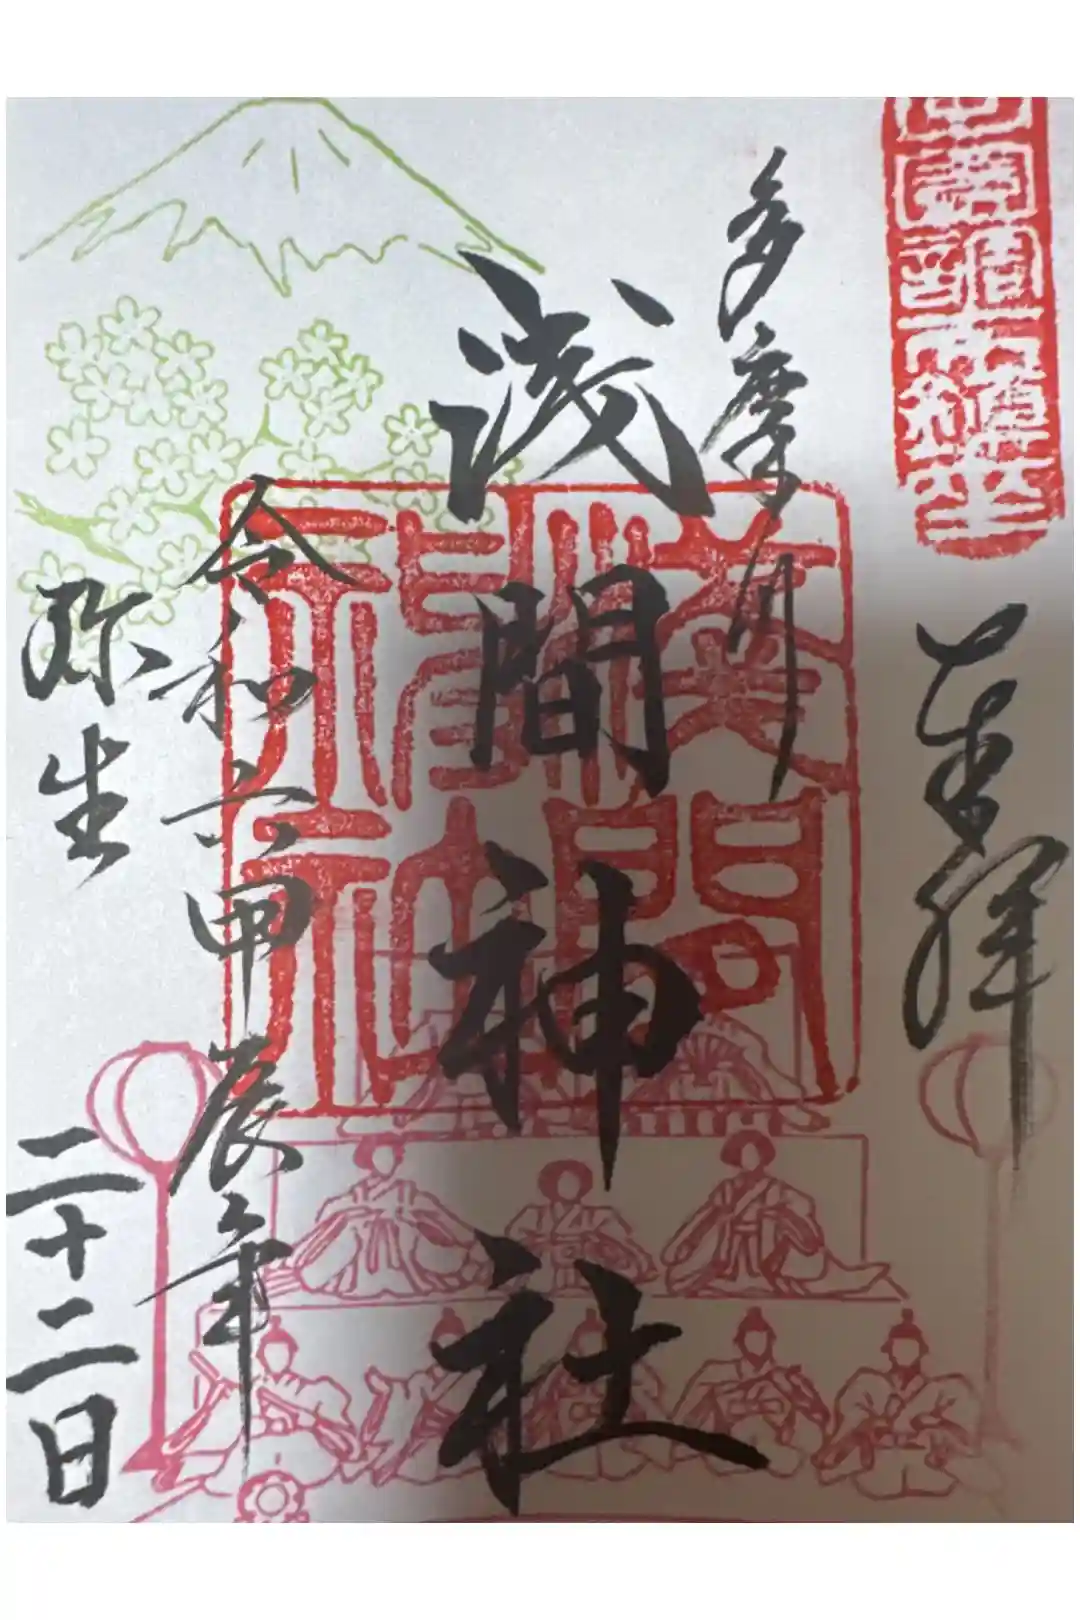 奉拝
多摩川
浅間神社
令和六甲辰年
弥生
二十二日